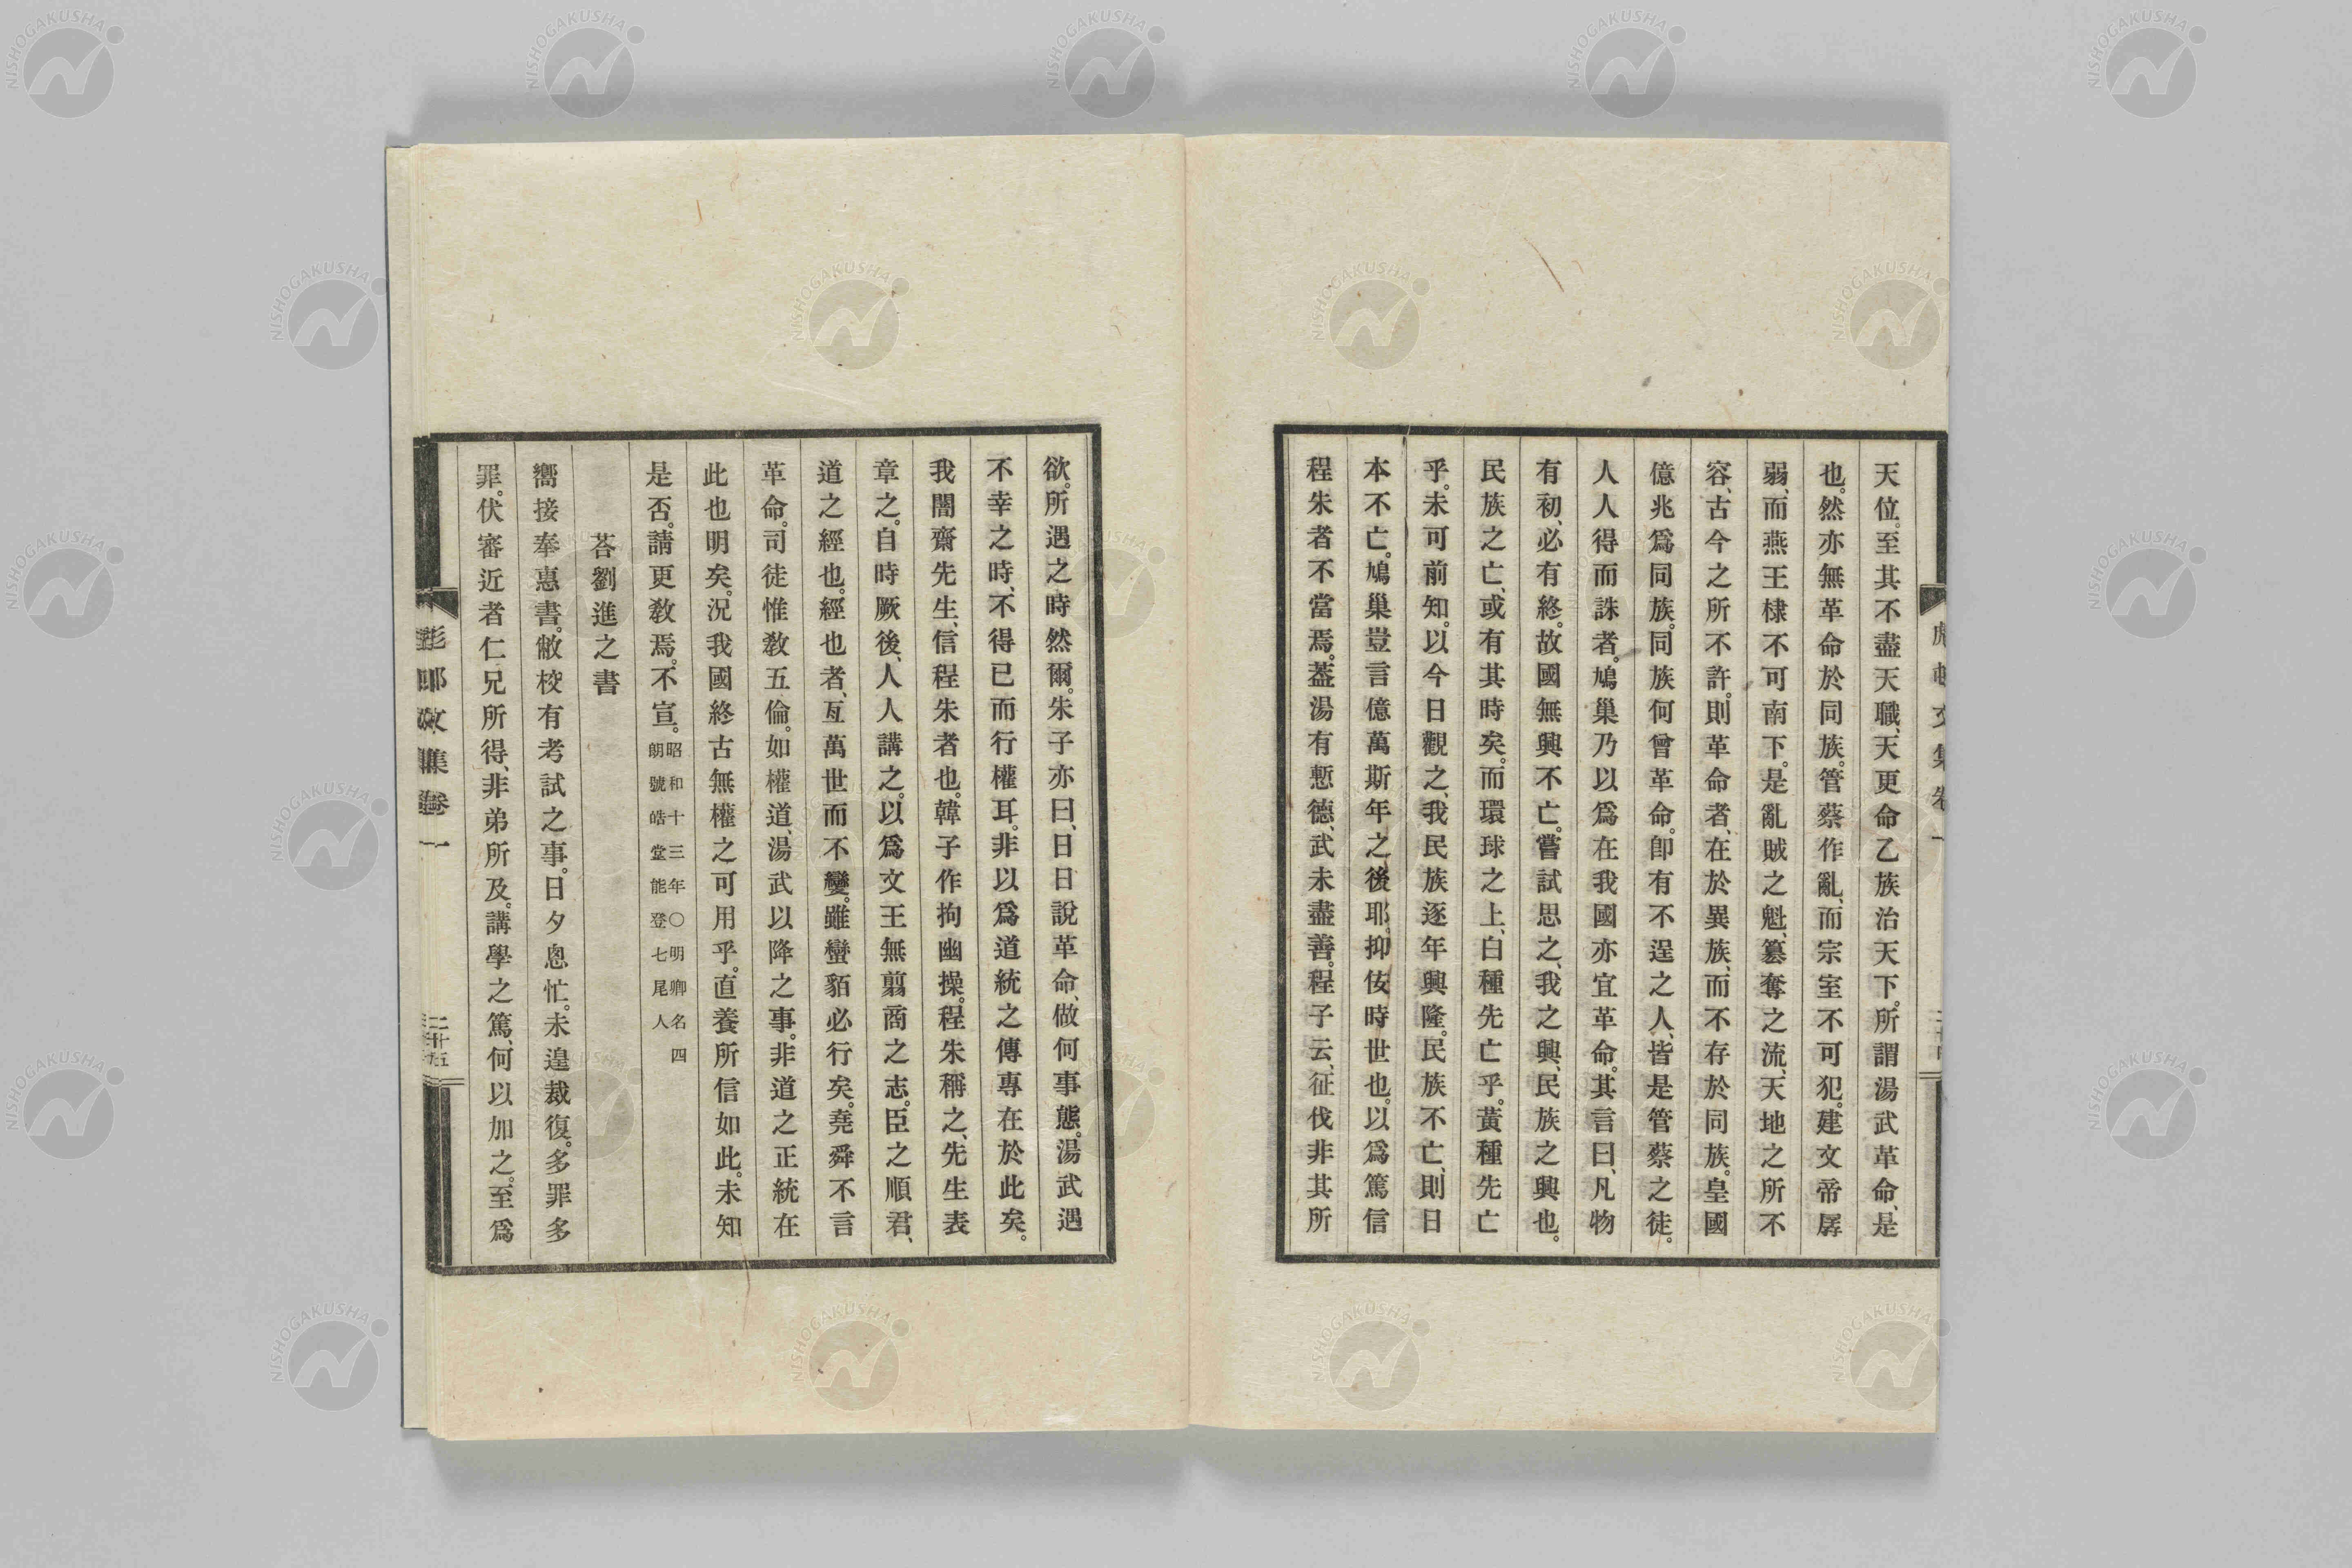 天位。至其不盡天職、天更命乙族治天下。所謂湯武革命、是
也。然亦無革命於同族。管蔡作亂、而宗室不可犯。建文帝孱
弱、而燕王棣不可南下。是亂賊之魁、簒奪之流、天地之所不
容、古今之所不許。則革命者、在於異族、而不存於同族。皇國
億兆爲同族。同族何曾革命。卽有不逞之人、皆是管蔡之徒。
人人得而誅者。鳩巢乃以爲在我國亦宜革命。其言曰、凡物
有初、必有終。故國無興不亡。嘗試思之、我之興、民族之興也。
民族之亡、或有其時矣。而環球之上、白種先亡乎。黃種先亡
乎。未可前知。以今日觀之、我民族逐年興隆。民族不亡、則日
本不亡。鳩巢豈言億萬斯年之後耶。抑佞時世也。以爲篤信
程朱者不當焉。蓋湯有慙德、武未盡善。程子云、征伐非其所
欲。所遇之時然爾。朱子亦曰、日日說革命、做何事態。湯武遇
不幸之時、不得已而行權耳。非以爲道統之傳專在於此矣。
我闇齋先生、信程朱者也。韓子作拘幽操。程朱稱之、先生表
章之。自時厥後、人人講之。以爲文王無翦商之志。臣之順君、
道之經也。經也者、亙萬世而不變。雖蠻貊必行矣。堯舜不言
革命。司徒惟敎五倫。如權道、湯武以降之事。非道之正統在
此也明矣。況我國終古無權之可用乎。直養所信如此。未知
是否。請更敎焉。不宣。昭和十三年〇明卿名四
朗號皓堂能登七尾人
荅劉進之書
嚮接奉惠書。敝校有考試之事。日夕悤忙。未遑裁復。多罪多
罪。伏審近者仁兄所得、非弟所及。講學之篤、何以加之。至爲
文集卷一
二十五
NISHOGAKUSHA